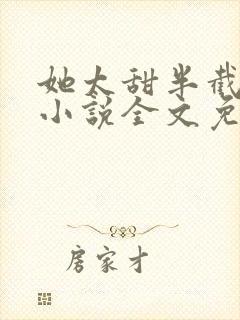 她太甜半截
小说全文免
房家才